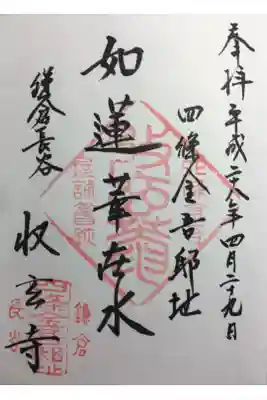 奉拝 平成二八年四月二十九日
四條金吾邸址
如蓮華在水
鎌倉長谷
収玄寺
鎌倉